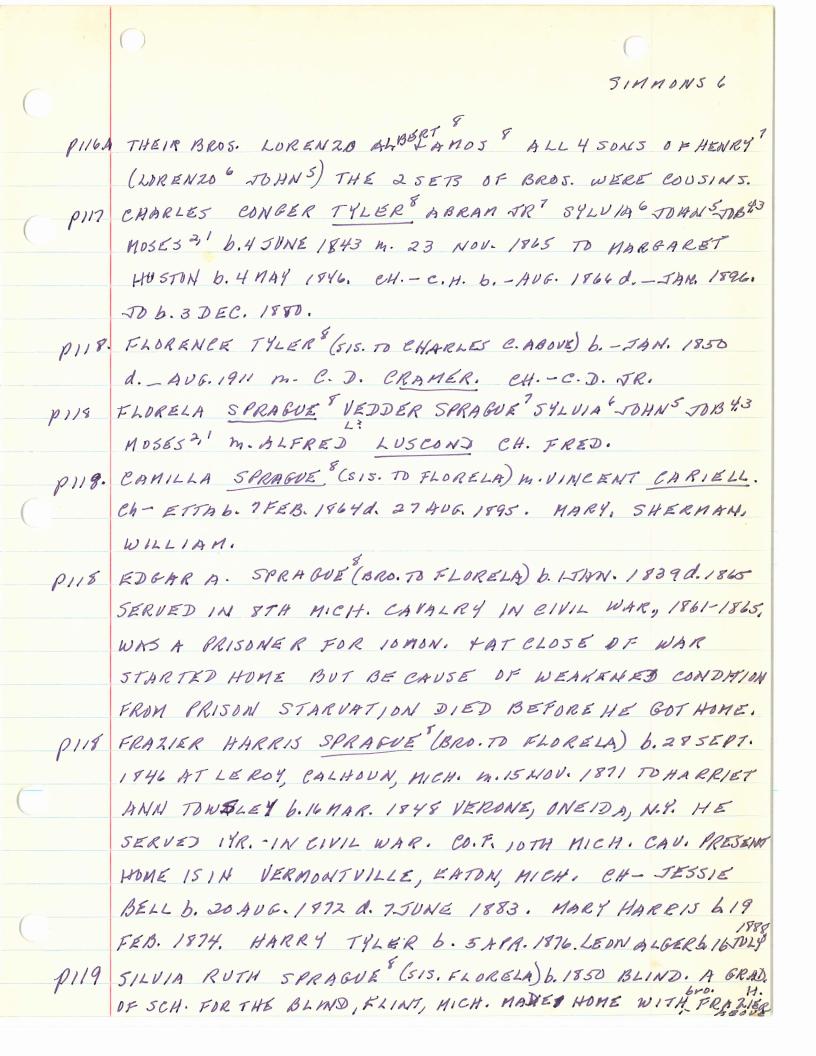 SIMMONS 6
P116A THEIR BROS. LORENZO ALBERT⁸ + AMOS⁸ ALL 4 SONS OF HENRY⁷
(LORENZO⁶ JOHN⁵) THE 2 SETS OF BROS. WERE COUSINS.
P117 CHARLES CONGER TYLER⁸ ABRAM JR⁷ SYLVIA⁶ JOHN⁵ JOB⁴,³
MOSES²,¹ b. 4 JUNE 1843 m. 23 NOV. 1865 TO MARGARET
HUSTON b. 4 MAY 1846. CH.- C.H. b. - AUG. 1866 d. - JAN. 1896.
JO b. 3 DEC. 1880.
P118. FLORENCE TYLER⁸ (SIS. TO CHARLES C. ABOVE) b. - JAN. 1850
d. - AUG. 1911 m. C. D. CRAMER. CH. - C.D. JR.
P118 FLORELA SPRAGUE⁸ VEDDER SPRAGUE⁷ SYLVIA⁶ JOHN⁵ JOB⁴,³
L?
MOSES²,¹ m. ALFRED LUSCOND CH. FRED.
P118. CAMILLA SPRAGUE⁸ (SIS. TO FLORELA) m. VINCENT CARIELL.
Ch- ETTA b. 7 FEB. 1864 d. 27 AUG. 1895. MARY, SHERMAN,
WILLIAM.
P118 EDGAR A. SPRAGUE⁸ (BRO. TO FLORELA) b. 1 JAN. 1839 d. 1865
SERVED IN 8TH MICH. CAVALRY IN CIVIL WAR, 1861-1865.
WAS A PRISONER FOR 10 MON. + AT CLOSE OF WAR
STARTED HOME BUT BECAUSE OF WEAKENED CONDITION
FROM PRISON STARVATION DIED BEFORE HE GOT HOME.
P118 FRAZIER HARRIS SPRAGUE⁸ (BRO. TO FLORELA) b. 28 SEPT.
1846 AT LEROY, CALHOUN, MICH. m. 15 NOV. 1871 TO HARRIET
ANN TOWSLEY b. 16 MAR. 1848 VERONE, ONEIDA, N.Y. HE
SERVED 1 YR. - IN CIVIL WAR. CO. F. 10TH MICH. CAV. PRESENT
HOME IS IN VERMONTVILLE, EATON, MICH. CH- JESSIE
BELL b. 20 AUG. 1872 d. 7 JUNE 1883. MARY HARRIS b. 19
FEB. 1874. HARRY TYLER b. 5 APR. 1876. LEON ALGER b. 16 JULY 1888
P119 SILVIA RUTH SPRAGUE⁸ (SIS. FLORELA) b. 1850 BLIND. A GRAD.
OF SCH. FOR THE BLIND, FLINT, MICH. MADE HOME WITH bro. FRAZIER H. ABOVE